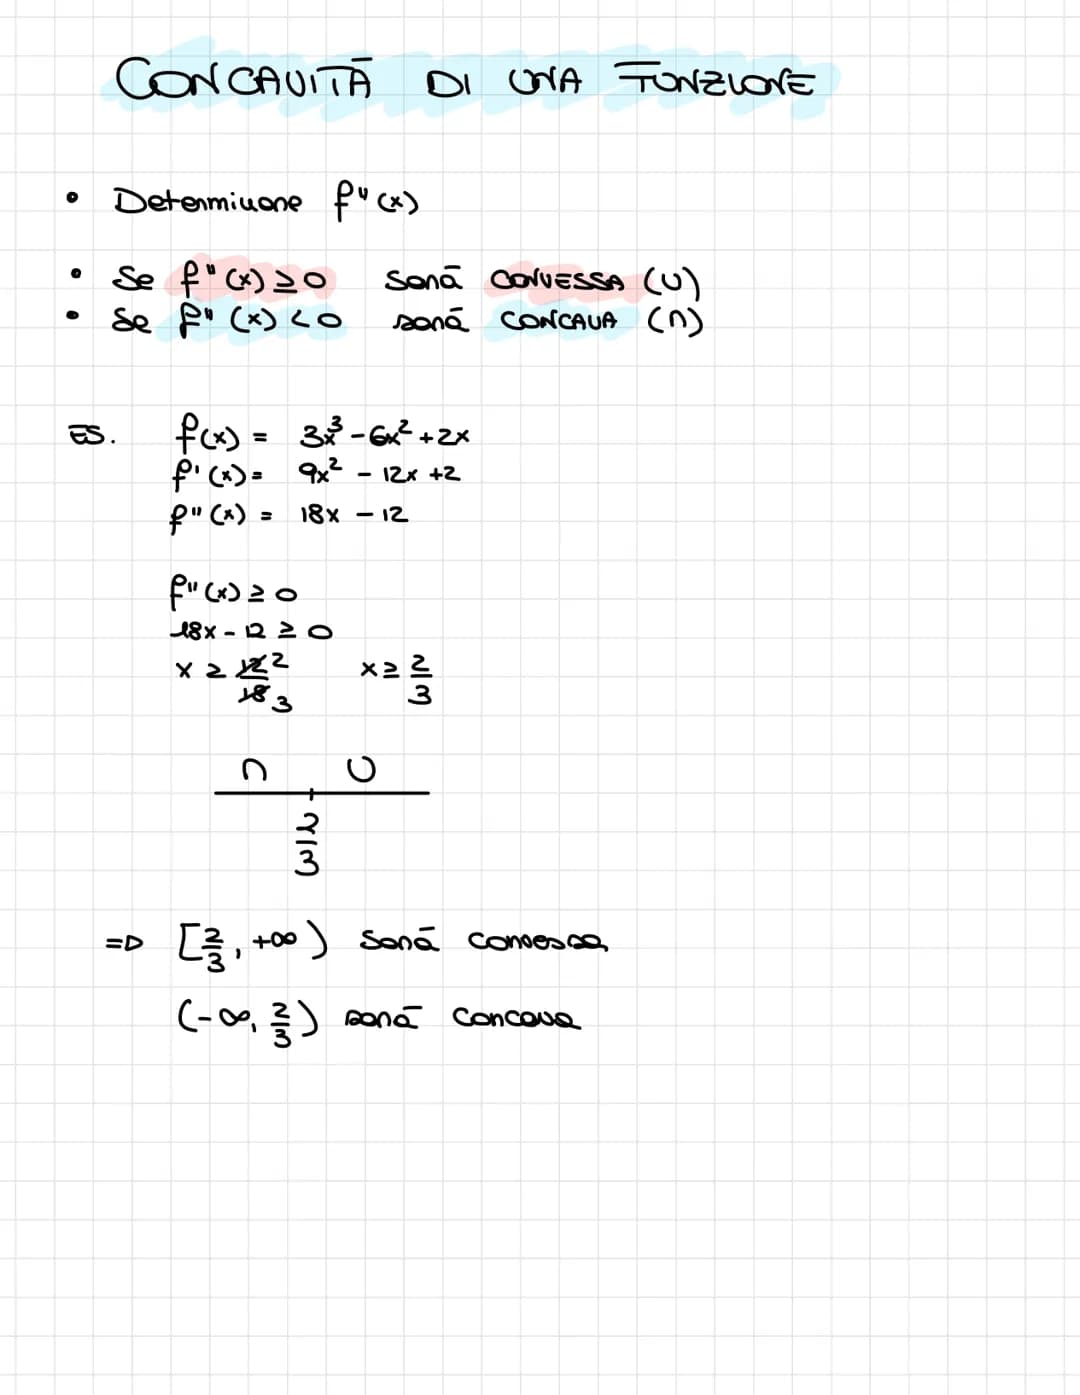 CONCAVITÀ DI UNA FUNZIONE
• Determinare f"(x)
• Se f"(x) ≥ 0 sarà CONVESSA (∪)
• Se f"(x) < 0 sarà CONCAVA (∩)
ES. f(x) = 3x³ - 6x² + 2x
f'(x) = 9x² - 12x + 2
f"(x) = 18x - 12
f"(x) ≥ 0
18x - 12 ≥ 0
x ≥ 12/18 2/3 x ≥ 2/3
∩ ∪
2/3
=D [2/3, +∞) sarà convessa
(-∞, 2/3) sarà concava